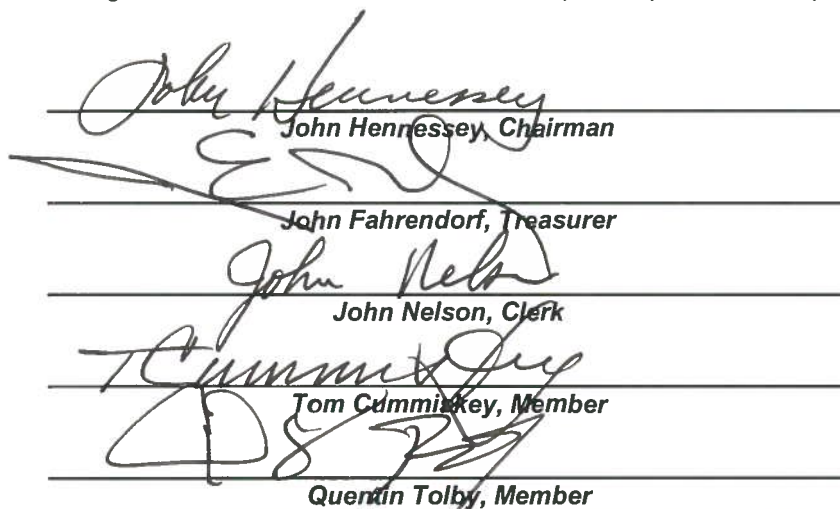 John Hennessey
John Hennessey, Chairman
John Fahrendorf, Treasurer
John Nelson
John Nelson, Clerk
T Cummiskey
Tom Cummiskey, Member
Quentin Tolby, Member